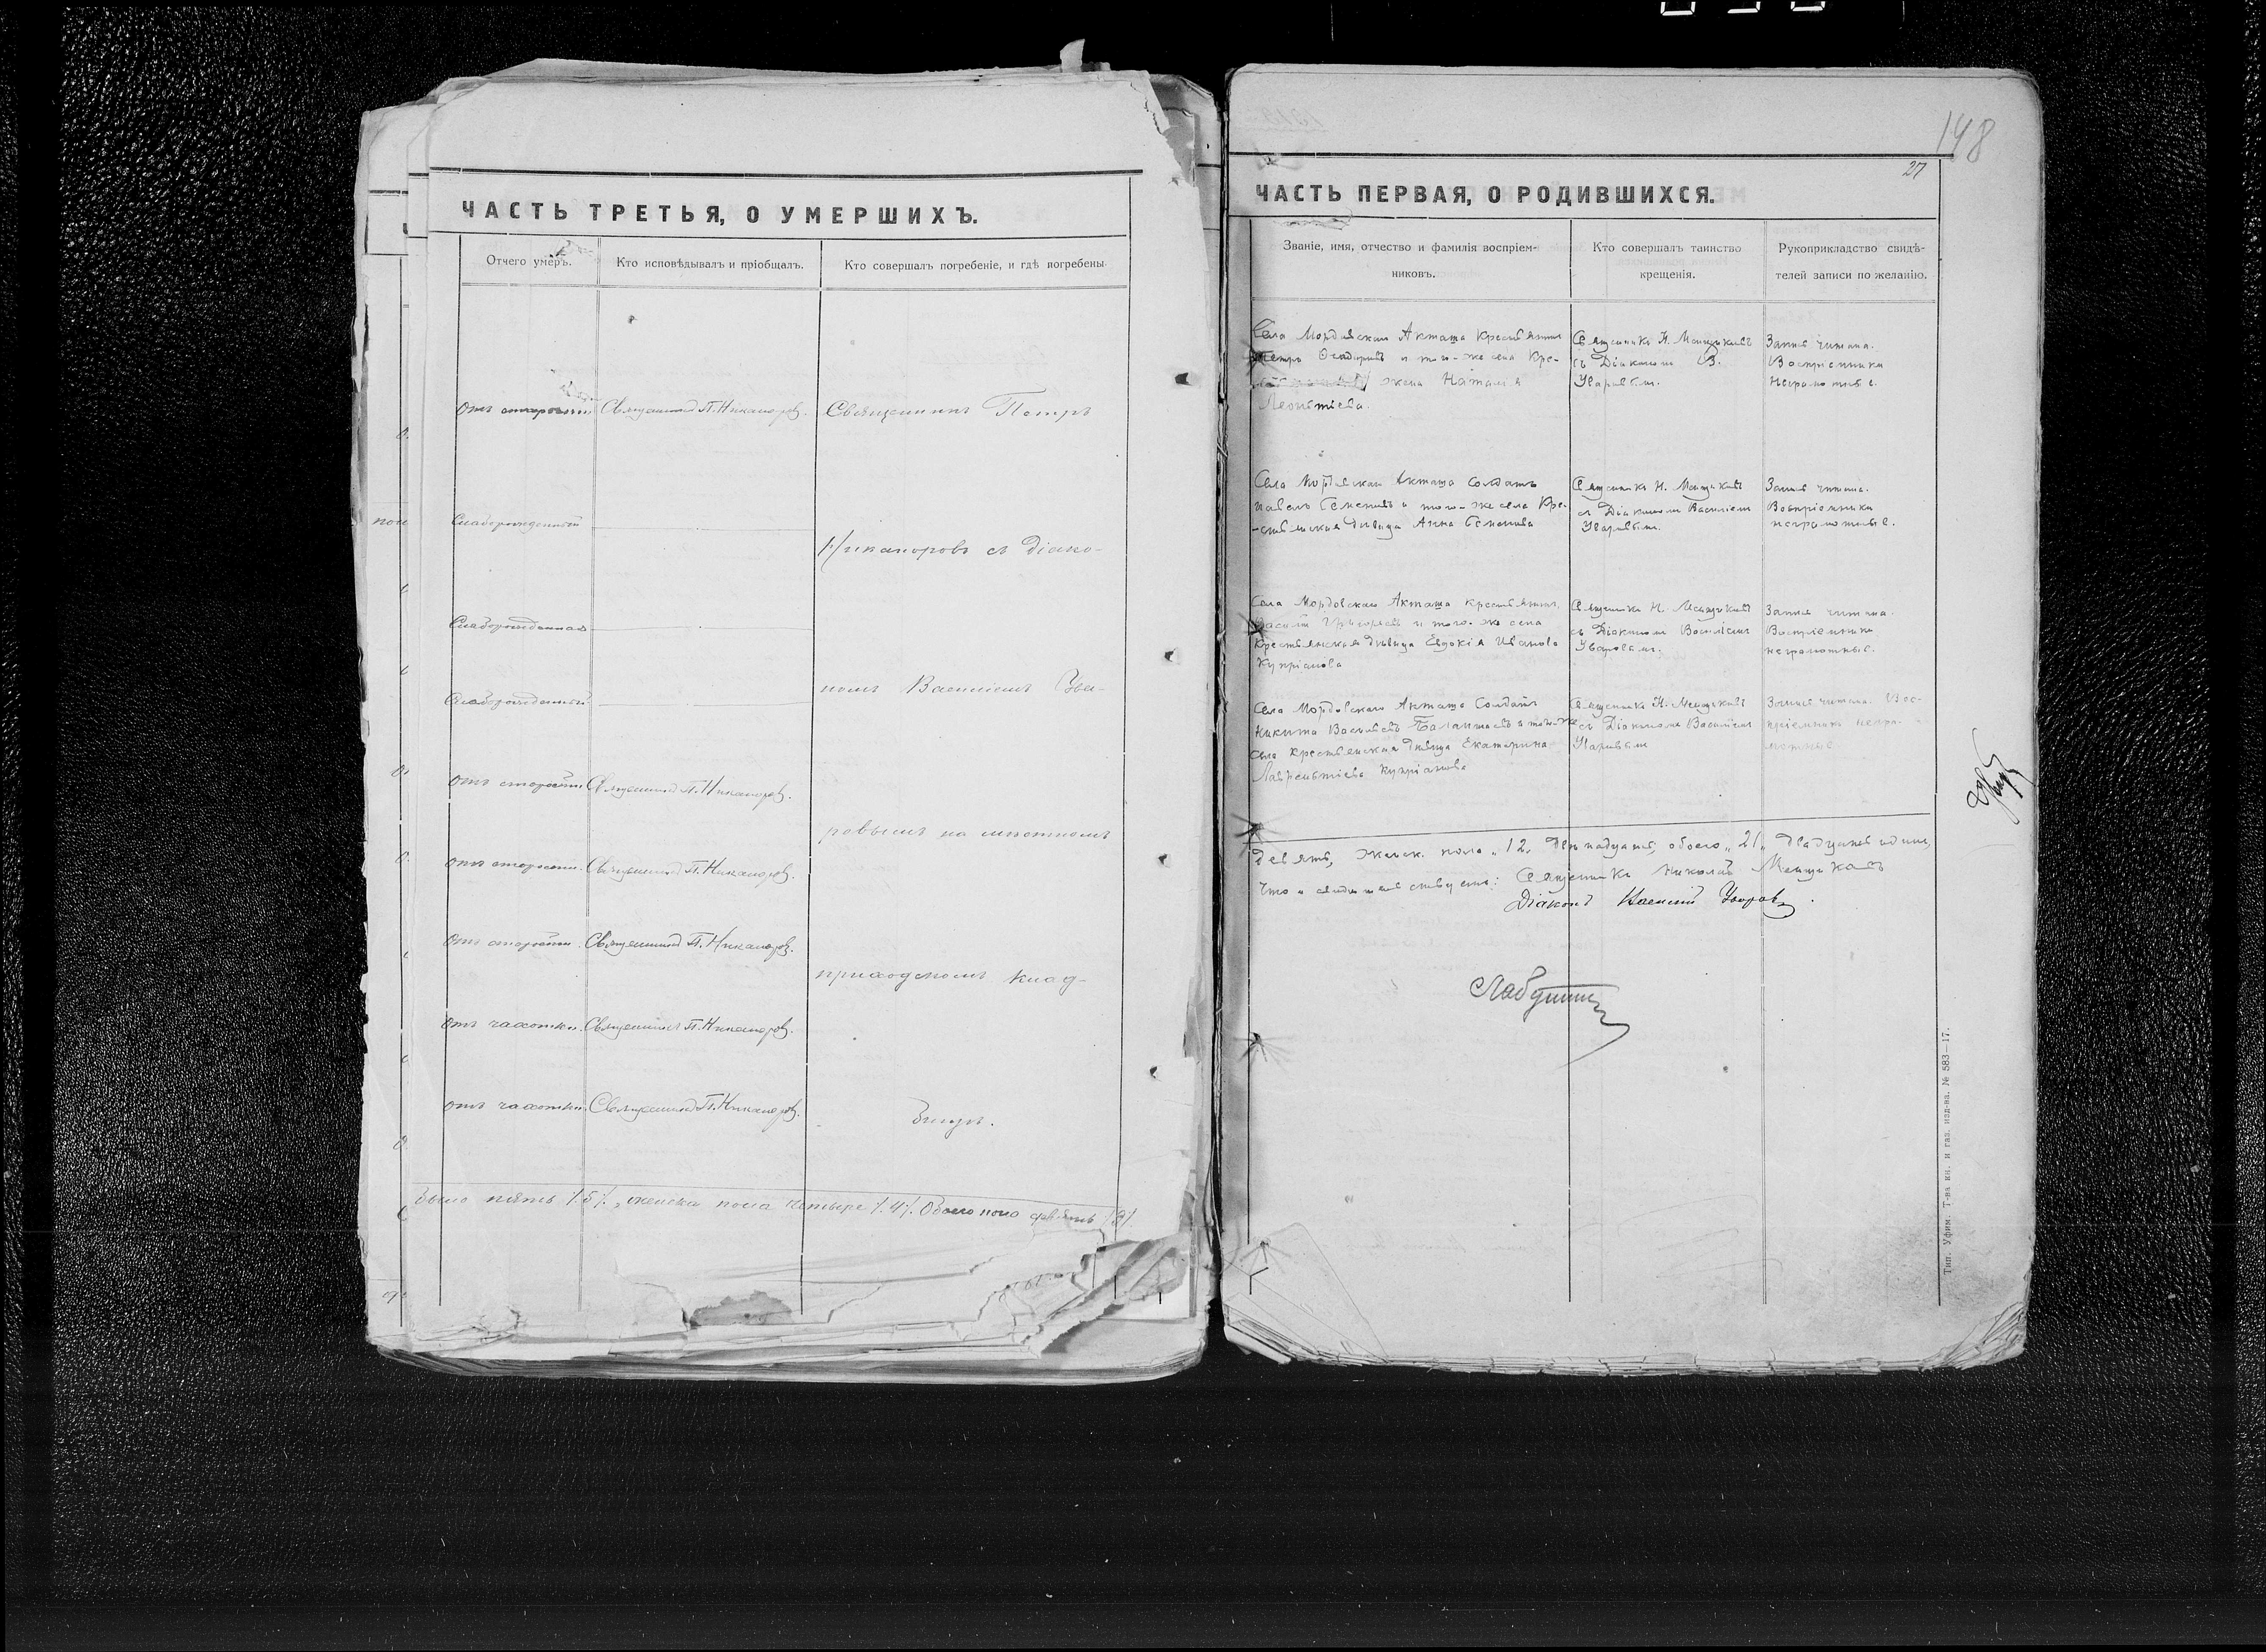 ЧАСТЬ ТРЕТЬЯ, О УМЕРШИХЪ.
Отчего умеръ.
Кто исповѣдывалъ и пріобщалъ.
Кто совершалъ погребеніе, и гдѣ погребены.
отъ старости
Священникъ П. Никаноровъ.
Священникъ Петръ
Слаборожденный
Никаноровъ съ діако-
Слаборожденная
Слаборожденный
номъ Василіемъ Ува-
отъ старости
Священникъ П. Никаноровъ.
ровымъ на мѣстномъ
отъ старости.
Священникъ П. Никаноровъ.
отъ старости.
Священникъ П. Никаноровъ.
приходскомъ клад-
отъ чахотки.
Священникъ П. Никаноровъ.
отъ чахотки.
Священникъ П. Никаноровъ.
бищѣ.
было пять /.5/., женска пола четыре /.4/. Обоего пола девять /9/.
148
27
ЧАСТЬ ПЕРВАЯ, О РОДИВШИХСЯ.
Званіе, имя, отчество и фамилія воспріем-
никовъ.
Кто совершалъ таинство
крещенія.
Рукоприкладство свидѣ-
телей записи по желанію.
Села Мордовскаго Акташа крестьянинъ
Петръ Ѳеодоровъ и того-же села Кре-
жена Наталія
Леонтіева.
Священникъ Н. Мещряковъ
съ Діакономъ В.
Уваровымъ.
Запись читана.
Воспріемники
неграмотные.
Села Мордовскаго Акташа Солдатъ
Павелъ Семеновъ и того-же села Кре-
-стьянская дѣвица Анна Семенова
Священникъ Н.
съ Діакономъ Василіемъ
Уваровымъ.
Запись читана.
Воспріемники
неграмотные.
Села Мордовскаго Акташа крестьянинъ
Василій Григорьевъ и того-же села
Крестьянская дѣвица Евдокія Иванова
Купріанова
Священникъ Н.
съ Діакономъ Василіемъ
Уваровымъ.
Запись читана.
Воспріемники
неграмотные.
Села Мордовскаго Акташа Солдатъ
Никита Васильевъ и того-же
села крестьянская дѣвица Екатерина
Лаврентіева Купріанова
Священникъ Н.
съ Діакономъ Василіемъ
Уваровымъ
Запись читана. Вос-
пріемники негра-
мотные.
девять, женск. пола „12„ двѣнадцать, обоего „21„ двадцать одинъ,
Что и свидѣтельствуемъ: Священникъ Николай
Діаконъ Василій Уваровъ.
Тип. Уфим. Т-ва кн. и газ. изд-ва. № 583—17.